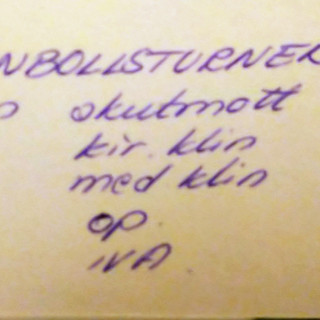 NBOLLSTURNER
o akutmott
kir. klin
med klin
op.
IVA